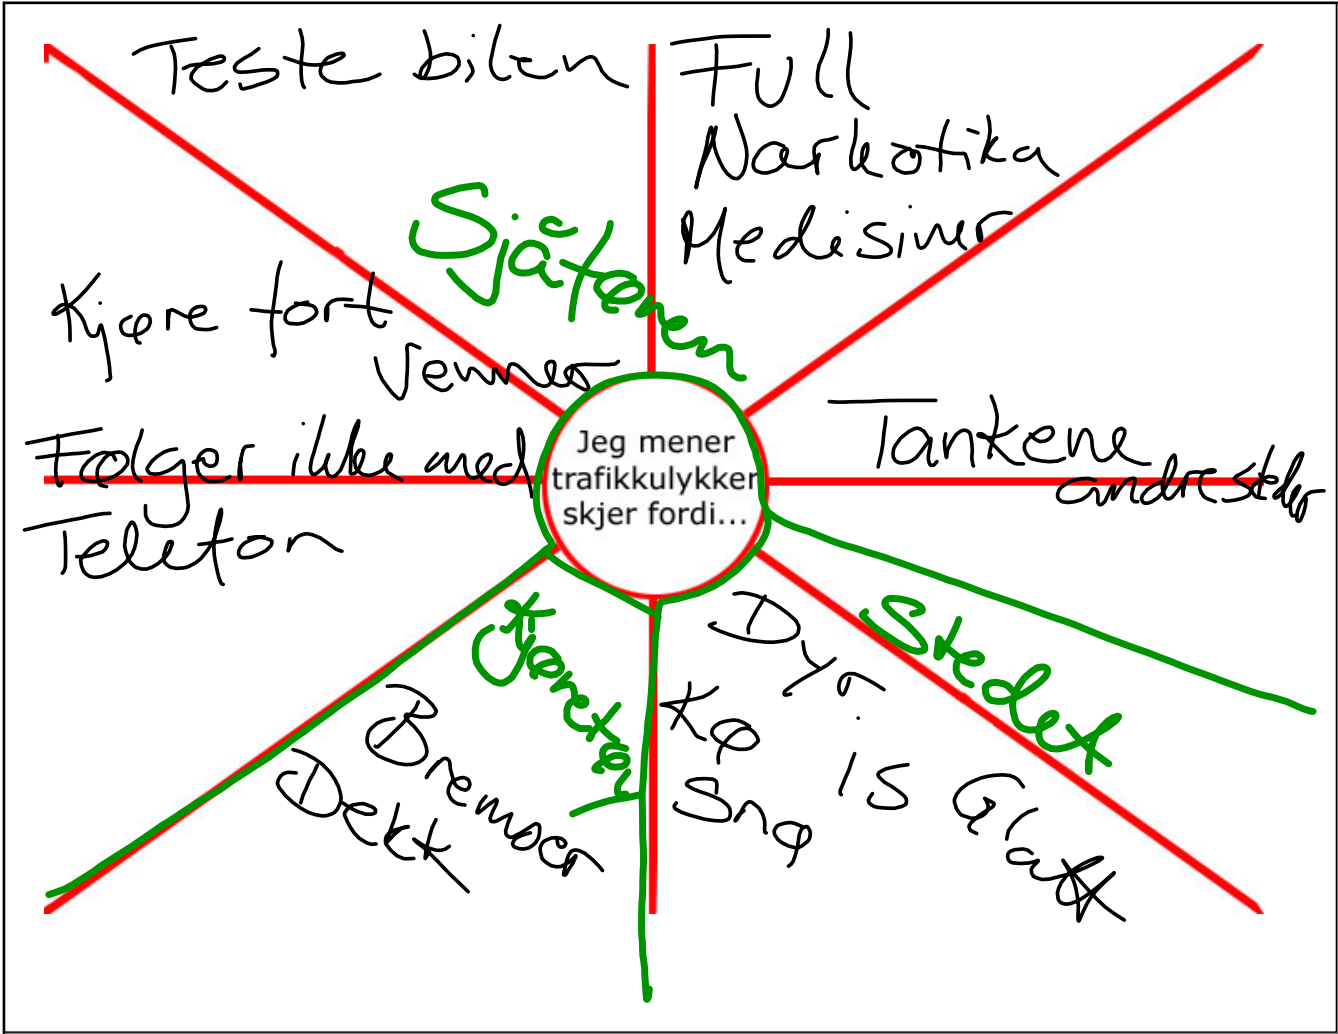 Teste bilen
Full
Narkotika
Medisiner
Sjåføren
Kjøre fort
Venner
Følger ikke med
Telefon
Jeg mener
trafikkulykker
skjer fordi...
Tankene
andre steder
Stedet
Dyr.
Kø
Snø
IS Glatt
Kjøretøy
Bremser
Dekk